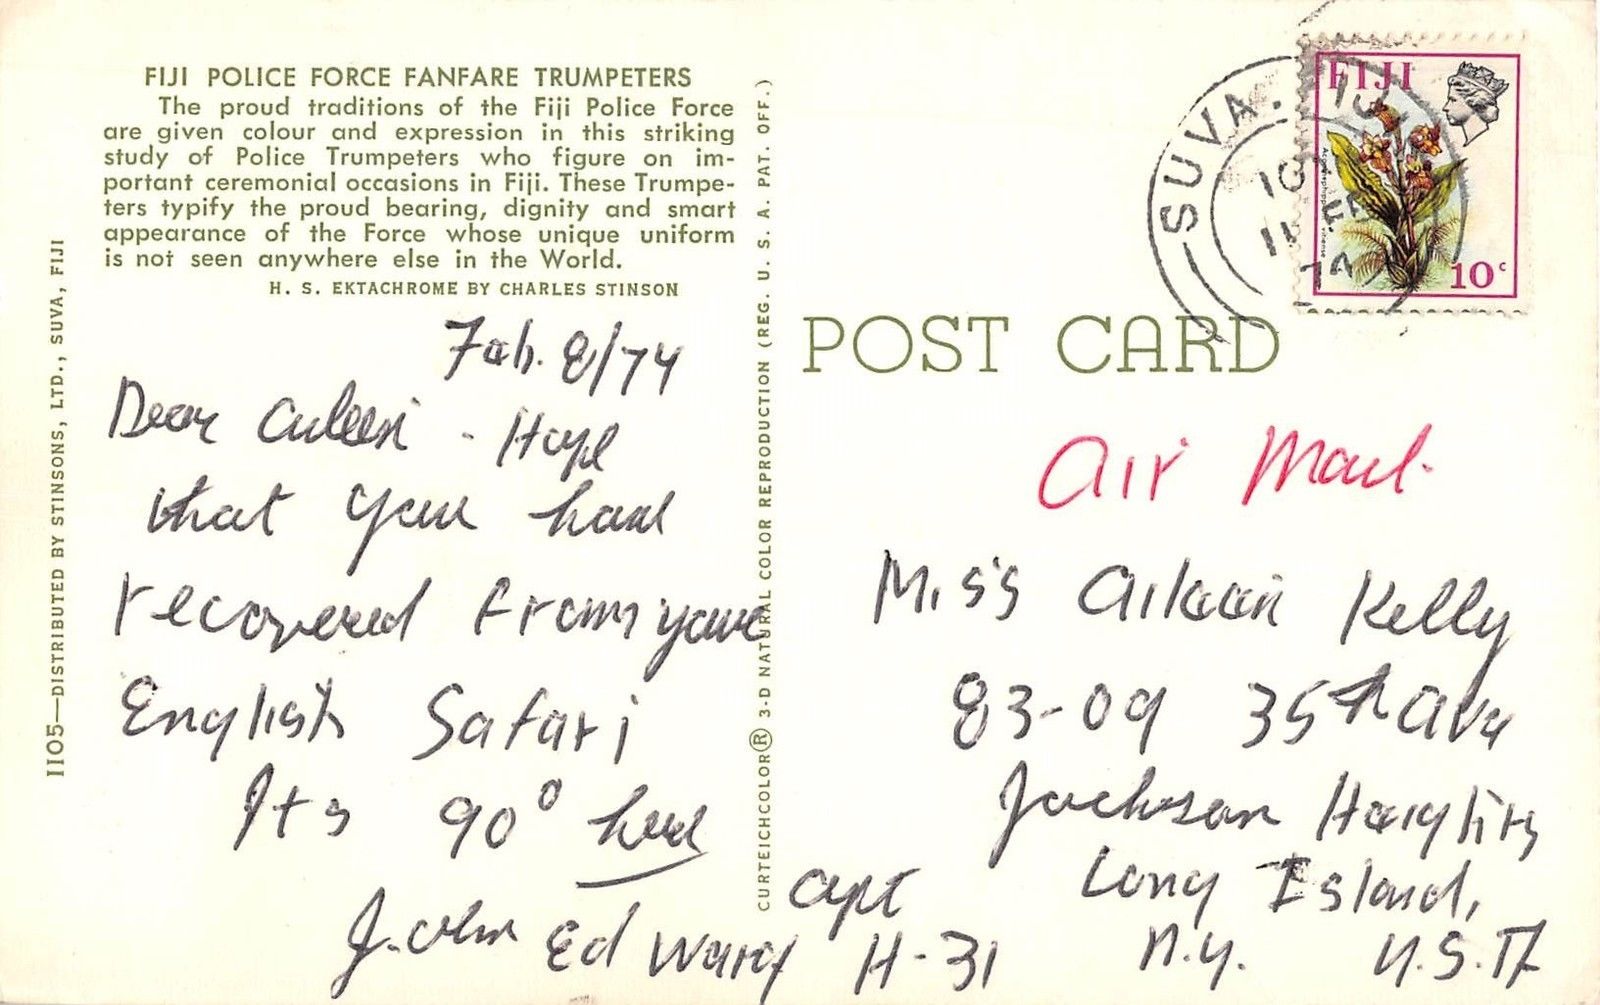 FIJI POLICE FORCE FANFARE TRUMPETERS
The proud traditions of the Fiji Police Force
are given colour and expression in this striking
study of Police Trumpeters who figure on im-
portant ceremonial occasions in Fiji. These Trumpe-
ters typify the proud bearing, dignity and smart
appearance of the Force whose unique uniform
is not seen anywhere else in the World.
H. S. EKTACHROME BY CHARLES STINSON
1105—DISTRIBUTED BY STINSONS, LTD., SUVA, FIJI
Feb. 8/74
Dear Aileen - Hope
that you have
recovered from your
English Safari
Its 90° here
John Edward
CURTEICHCOLOR® 3-D NATURAL COLOR REPRODUCTION (REG. U. S. A. PAT. OFF.)
SUVA. FIJI
10
11 FE
74
FIJI
10c
POST CARD
Air Mail.
Miss Aileen Kelly
83-09 35th Ave
Jackson Heights
Long Island,
Apt H-31
N.Y. U.S.A